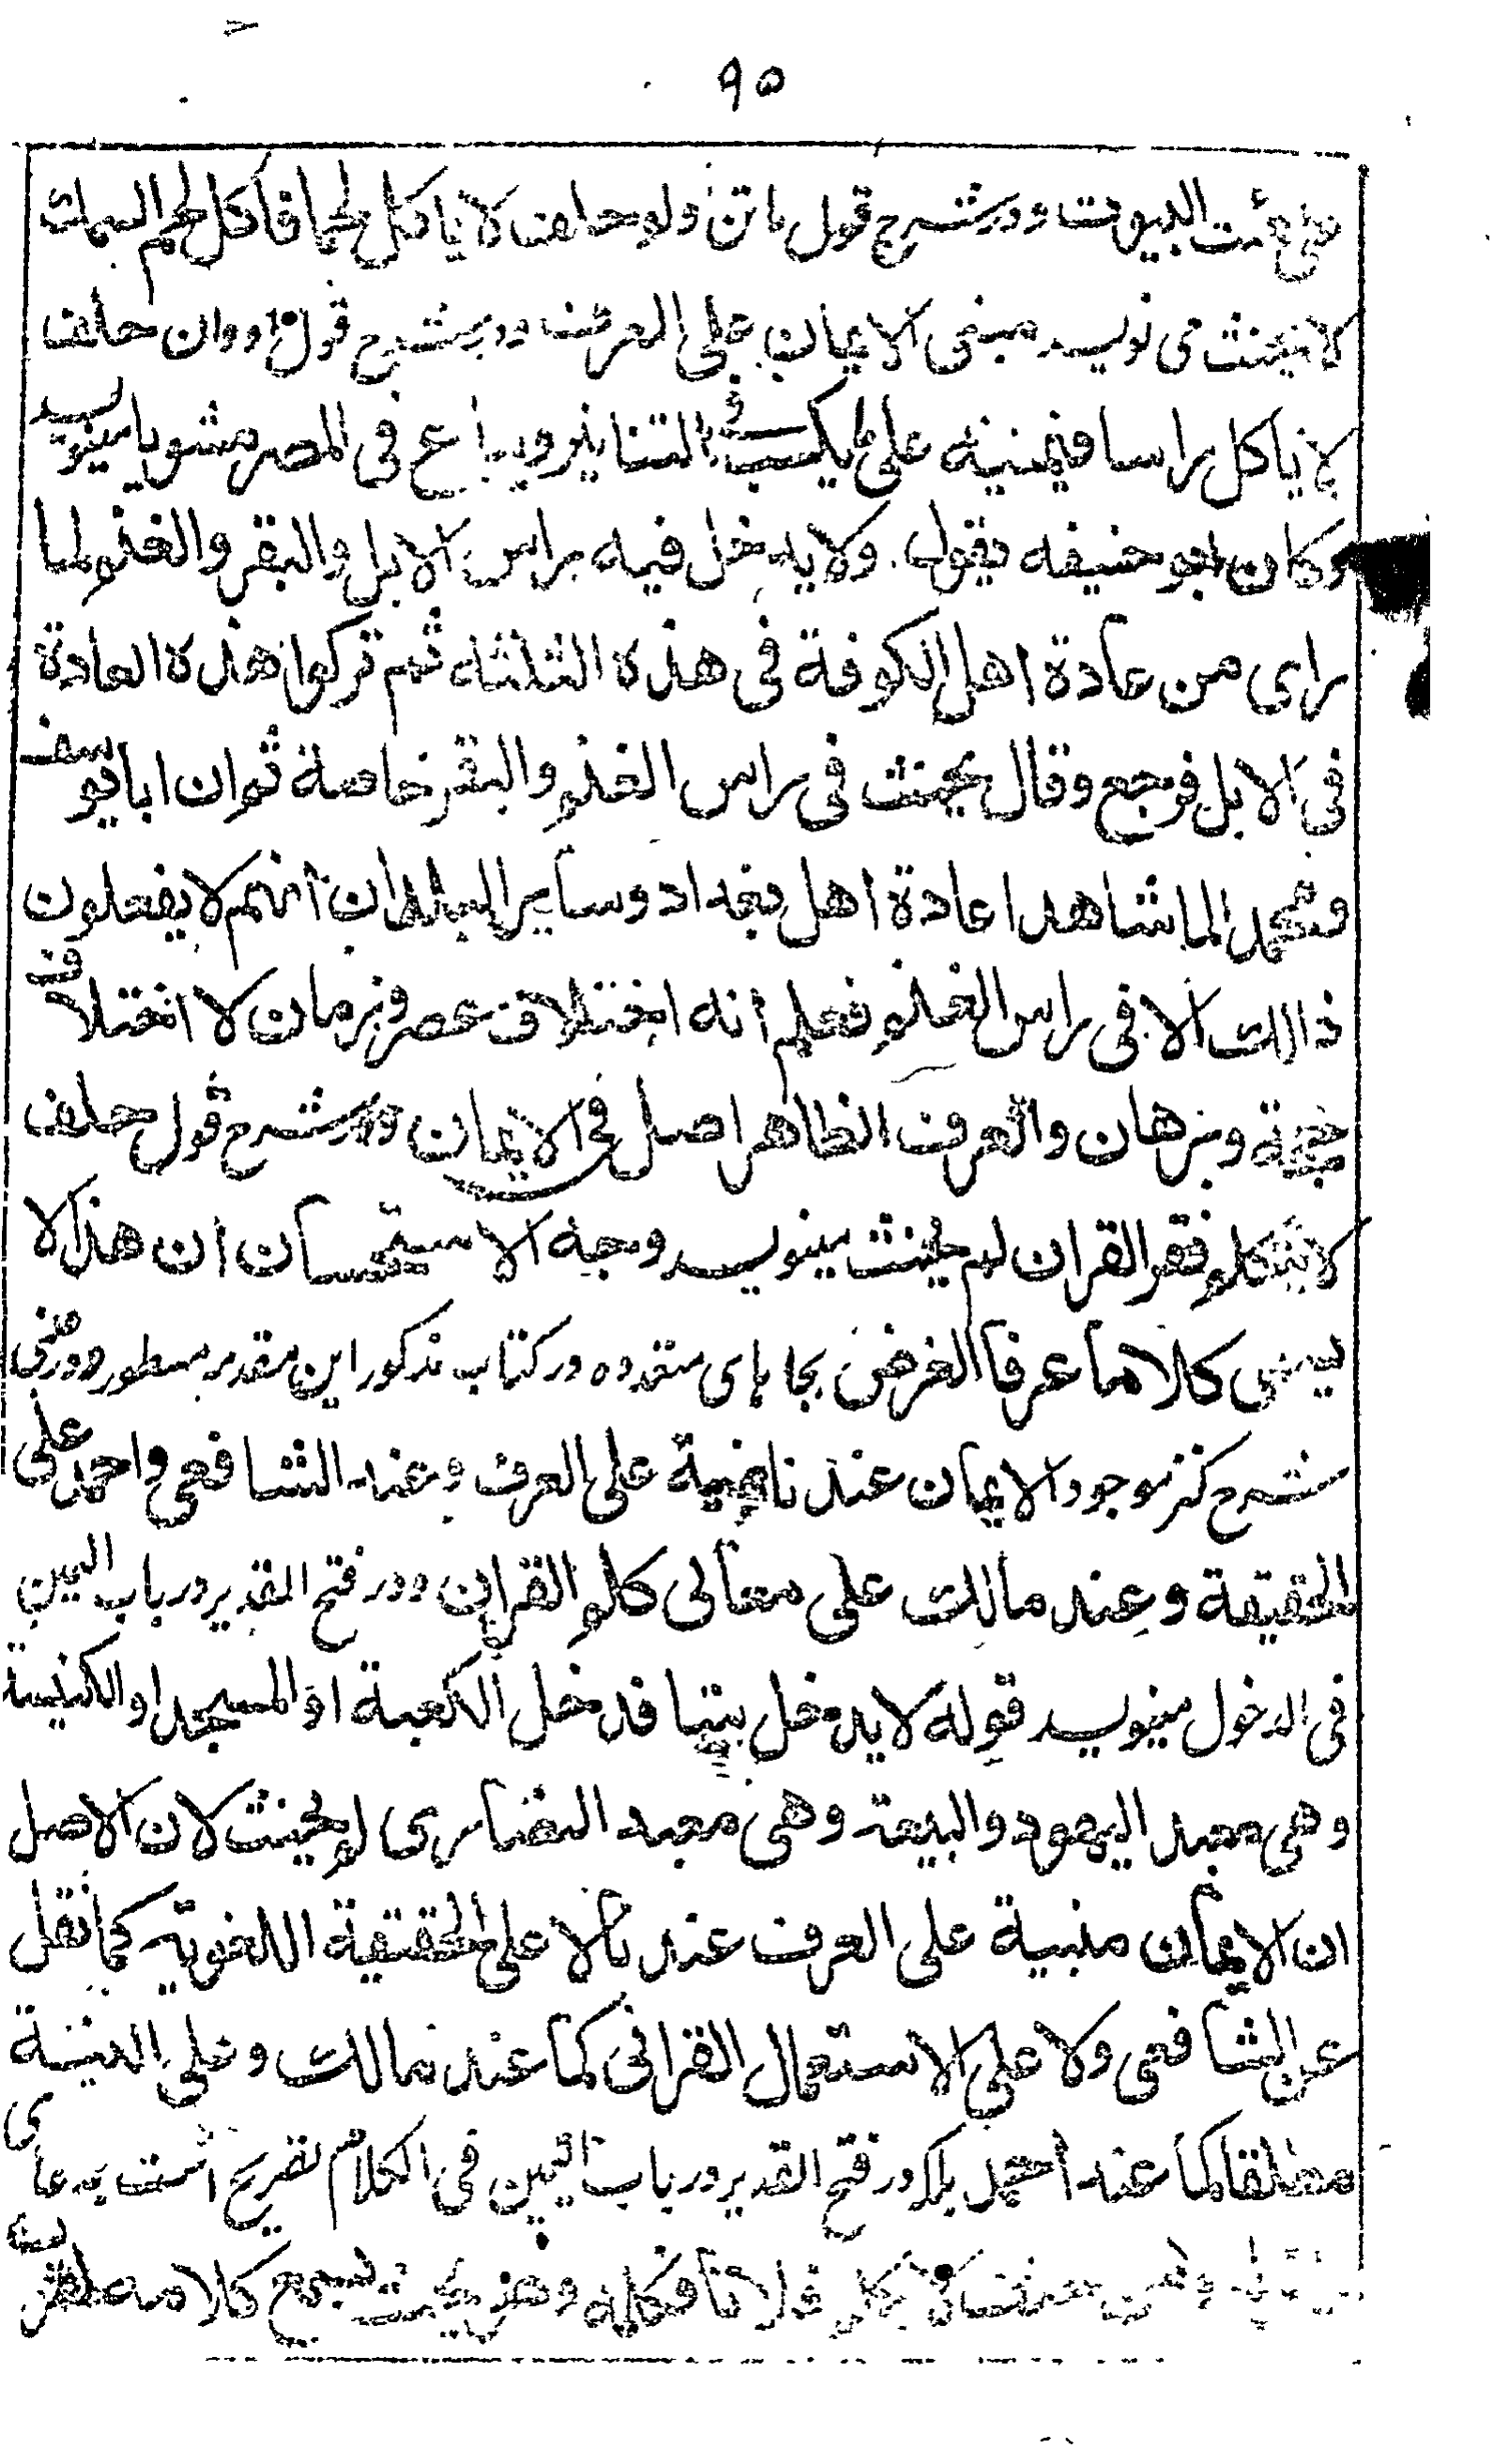 ۹۵
البيوت ودر شرح قول ماتن ولو حلف لا ياكل لحما فاكل لحم السمك
لا يحنث می نویسد مبنی الایمان علی العرف ودر شرح قول او وان حلف
لا ياكل راسا فيمنيه على ما يكبس فى التنانير ويباع فى المصر مشويا مینویسد
وكان ابو حنيفه يقول ولا يدخل فيه راس الابل والبقر والغنم لما
راى من عادة اهل الكوفة فى هذه الثلثه ثم تركوا هذه العادة
فى الابل فرجع وقال يحنث فى راس الغنم والبقر خاصة ثم ان ابا يوسف
ومحمد لما شاهدا عادة اهل بغداد وساير البلدان انهم لا يفعلون
ذالك الا فى راس الغنم فعلم انه اختلاف عصر وزمان لا اختلاف
حجة وبرهان والعرف الظاهر اصل فى الايمان ودر شرح قول حلف
لا يتكلم فقر القران لم يحنث مینویسد وجه الاستحسان ان هذا لا
يسمى كلاما عرفا الغرض بجا ہای متعدده در کتاب مذکور این مقدمه مسطور ودر عینی
شرح کنز موجود الايمان عندنا مبنية على العرف وعند الشافعى واحمد على
الحقيقة وعند مالك على معانى كلام القران ودر فتح القدیر در باب الیمین
فى الدخول مینویسد قوله لا يدخل بيتا فدخل الكعبة او المسجد او الكنيسة
وهى معبد اليهود والبيعة وهى معبد النصارى لم يحنث لان الاصل
ان الايمان منبية على العرف عندنا لا على الحقيقة اللغوية كما نقل
عن الشافعى ولا على الاستعمال القرانى كما عند مالك وعلى النية
مطلقا كما عند احمد بلکه در فتح القدیر در باب الیمین فى الكلام تصریح است بمدعای
فلانا فكلمه وهو بحيث يسمع كلامه